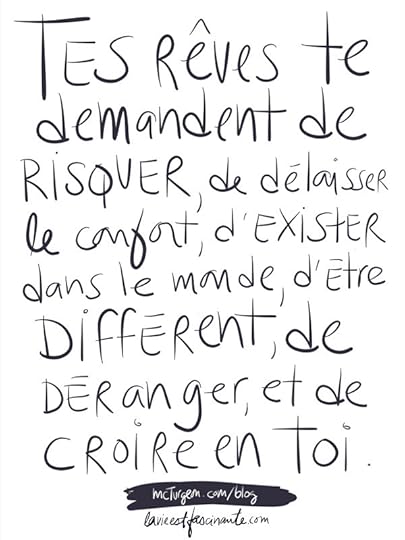 TES RÊVES te
demandent de
RISQUER, de délaisser
le confort, d'EXISTER
dans le monde, d'être
DIFFÉRENT, de
DÉRanger, et de
CROIRE en TOI.
mcTurgeon.com/blog
lavieestfascinante.com